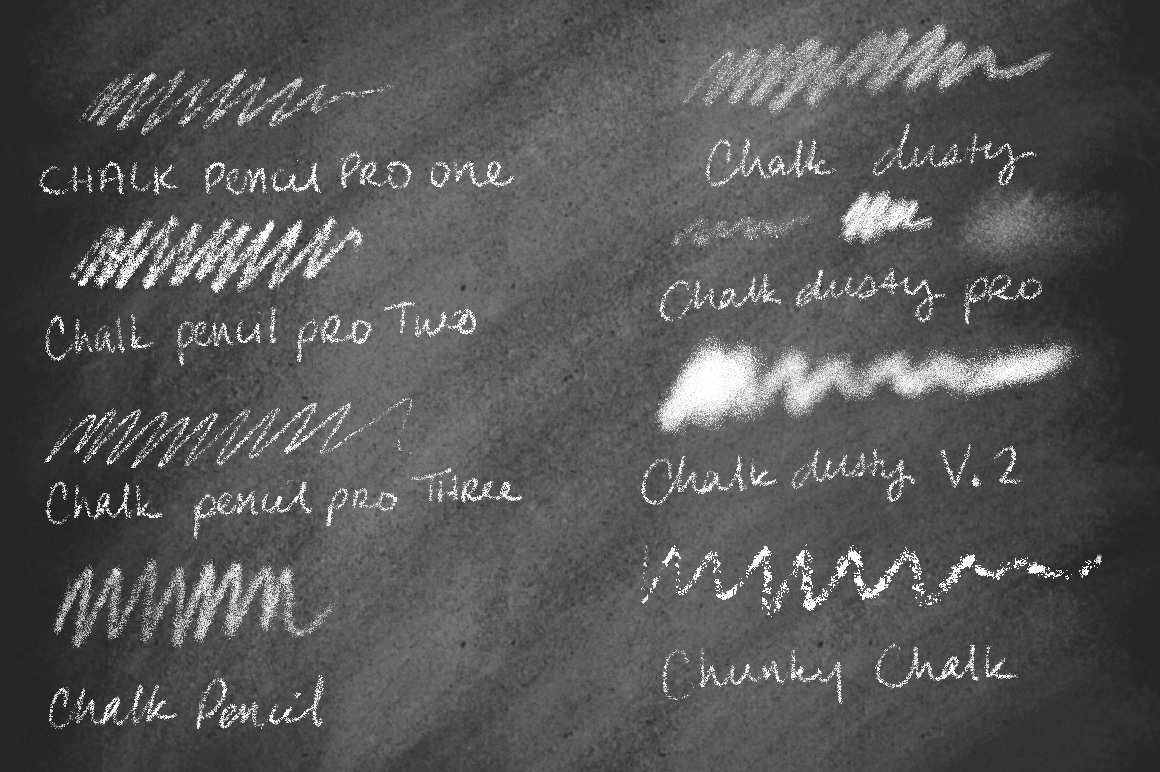 CHALK pencil PRO one
Chalk pencil pRO Two
Chalk pencil pRO THRee
Chalk Pencil
Chalk dusty
Chalk dusty pRO
Chalk dusty V.2
Chunky Chalk